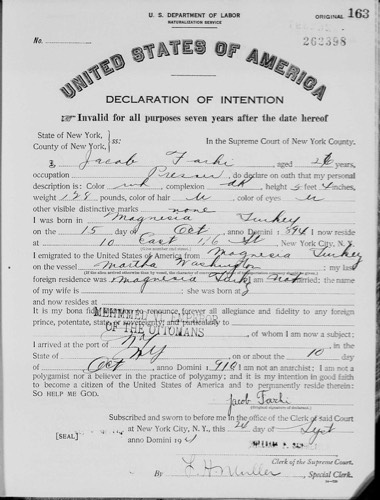 U. S. DEPARTMENT OF LABOR
NATURALIZATION SERVICE
ORIGINAL 163
No.
262398
UNITED STATES OF AMERICA
DECLARATION OF INTENTION
Invalid for all purposes seven years after the date hereof
State of New York,
County of New York, ss:
In the Supreme Court of New York County.
I, Jacob Farhi, aged years,
occupation Presser, do declare on oath that my personal
description is: Color wh, complexion dk, height 5 feet inches,
weight 128 pounds, color of hair, color of eyes
other visible distinctive marks none
I was born in Magnesia Turkey
on the 15 day of Oct, anno Domini 1894; I now reside
at 10 East 116 St, New York City, N. Y.
(Give number and street.)
I emigrated to the United States of America from Magnesia Turkey
on the vessel Martha Washington; my last
(If the alien arrived otherwise than by vessel, the character of conveyance or name of transportation company should be given.)
foreign residence was Magnesia Turk; I am not married; the name
of my wife is; she was born at
and now resides at
It is my bona fide intention to renounce forever all allegiance and fidelity to any foreign
prince, potentate, state, or sovereignty, and particularly to
MEHMMED V, EMPEROR
OF THE OTTOMANS
, of whom I am now a subject;
I arrived at the port of NY, in the
State of NY, on or about the 10 day
of Oct, anno Domini 1910; I am not an anarchist; I am not a
polygamist nor a believer in the practice of polygamy; and it is my intention in good faith
to become a citizen of the United States of America and to permanently reside therein:
SO HELP ME GOD.
Jacob Farhi
(Original signature of declarant.)
Subscribed and sworn to before me in the office of the Clerk of said Court
[SEAL] at New York City, N. Y., this 24 day of Sept
anno Domini 191
Clerk of the Supreme Court.
By, Special Clerk.